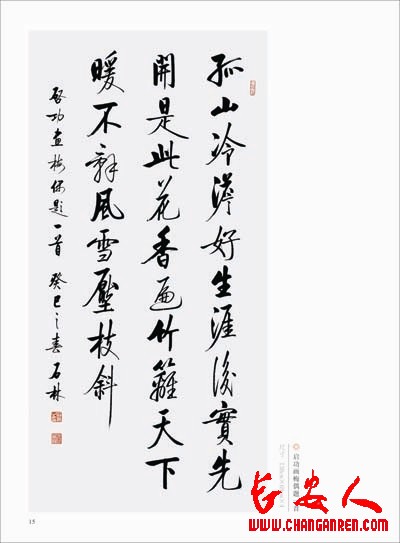 孤山冷澹好生涯後實先
開是此花香遍竹籬天下
暖不辭風雪壓枝斜
啓功畫梅偶題一首 癸巳之春 石林
启功画梅偶题一首
15
长安人
WWW.CHANGANREN.COM